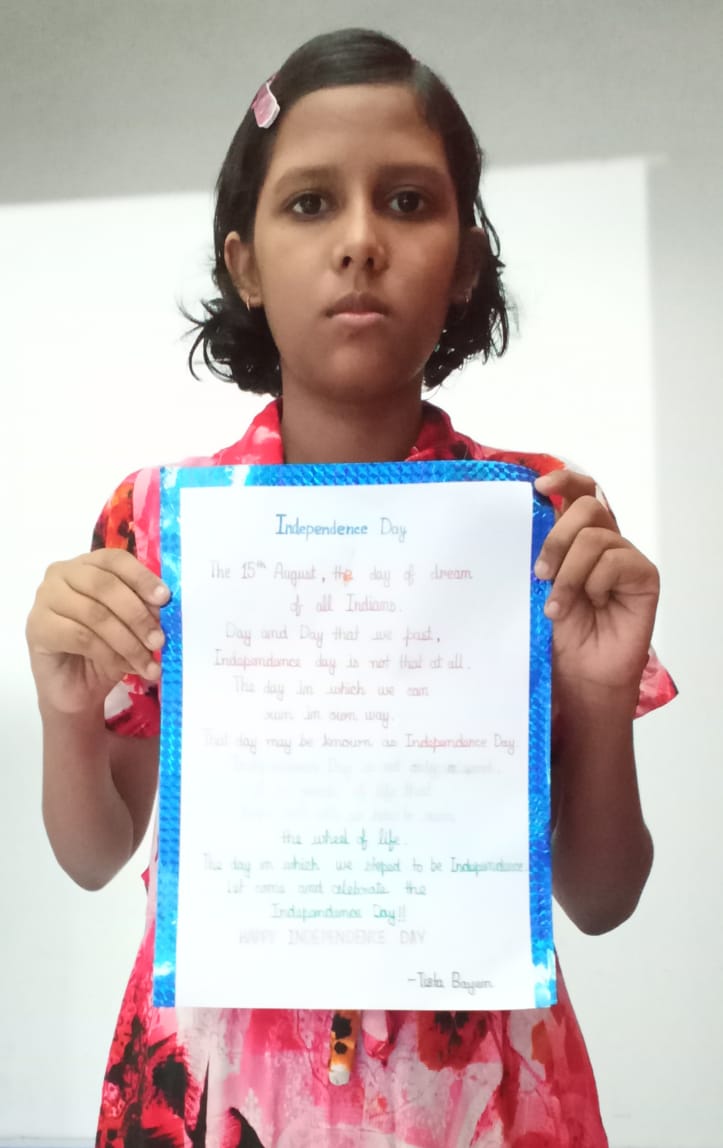 Independence Day
The 15th August, the day of dream
of all Indians.
Day and Day that we past,
Independence day is not that at all.
The day in which we can
own in own way.
That day may be known as Independence Day
Independence Day is not only a word,
of life that
the wheel of life.
The day in which we steped to be Independence.
Let come and celebrate the
Independence Day!!
HAPPY INDEPENDENCE DAY
- Tista Bayen